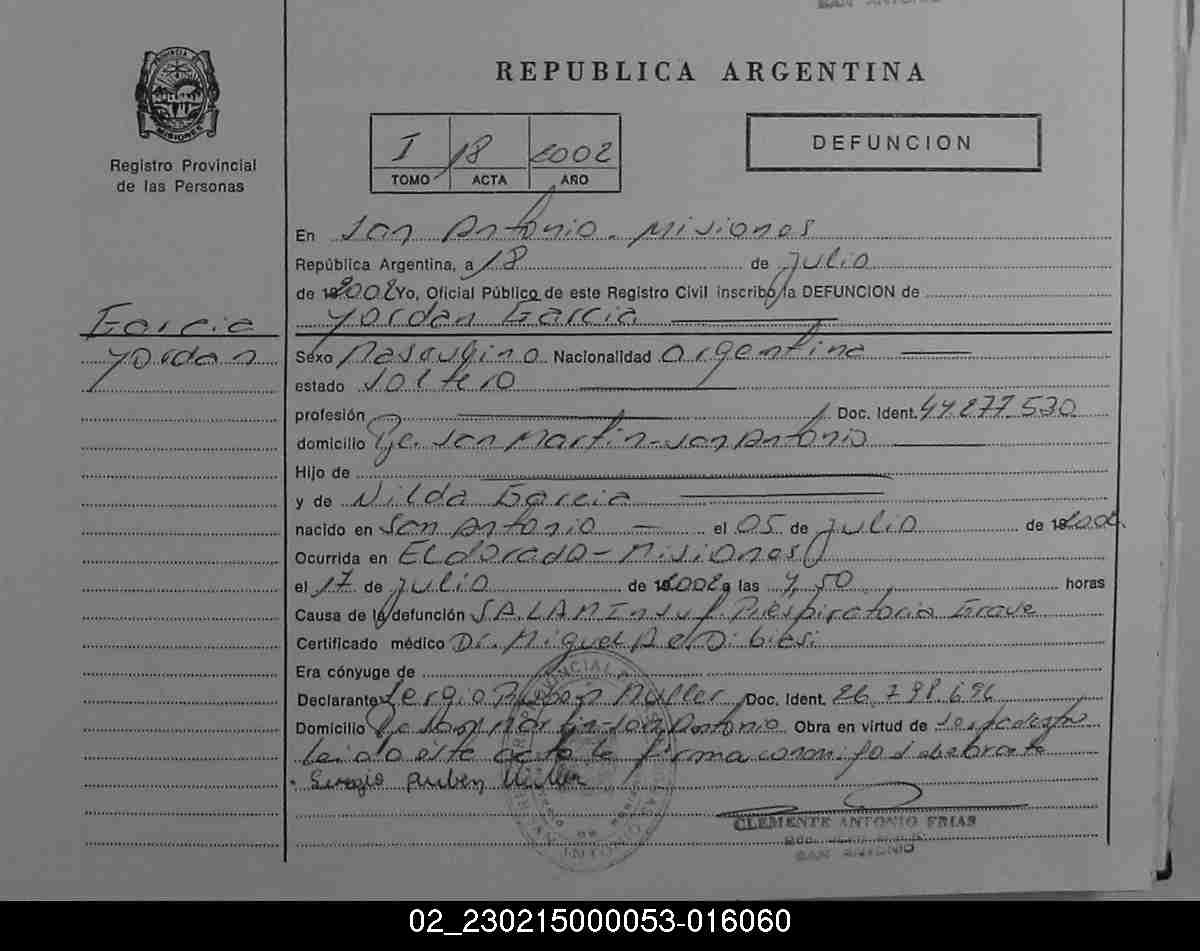 SAN ANTONIO
PROVINCIA DE
MISIONES
Registro Provincial
de las Personas
REPUBLICA ARGENTINA
I 18 2002
TOMO ACTA AÑO
DEFUNCION
En San Antonio. Misiones
República Argentina, a 18 de julio
de 2002 Yo, Oficial Público de este Registro Civil inscribo la DEFUNCION de
Yordan Garcia
Garcia
Yordan
Sexo Masculino Nacionalidad argentina
estado soltero
profesión Doc. Ident. 44277.530
domicilio San Martin - San Antonio
Hijo de
y de Nilda Garcia
nacido en San Antonio el 05 de julio de 2002
Ocurrida en Eldorado - Misiones
el 17 de julio de 2002 a las 4,50 horas
Causa de la defunción Insuf. Respiratoria Grave
Certificado médico Dr. Miguel
Era cónyuge de
Declarante Sergio Ruben Muller Doc. Ident. 26.798.696
Domicilio San Martin - San Antonio Obra en virtud de
leido este acta la firma conmigo el
Sergio Ruben Müller
CLEMENTE ANTONIO FRIAS
SAN ANTONIO
02_230215000053-016060